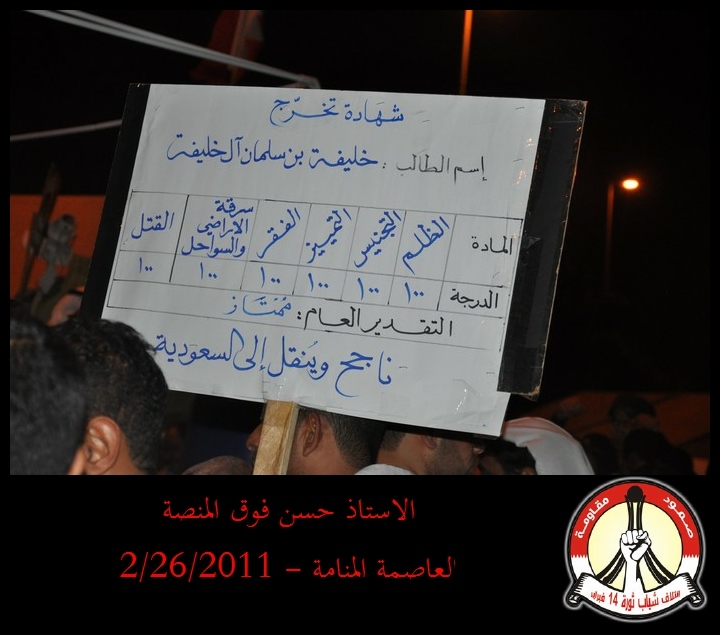 شهادة تخرّج
إسم الطالب : خليفة بن سلمان آل خليفة
المادة الظلم التجنيس التمييز الفقر سرقة الاراضي والسواحل القتل
الدرجة ١٠٠ ١٠٠ ١٠٠ ١٠٠ ١٠٠ ١٠٠
التقدير العام : ممتاز
- ناجح وينقل إلى السعودية -
الاستاذ حسن فوق المنصة
لعاصمة المنامة – 2/26/2011
صمود مقاومة
ائتلاف شباب ثورة 14 فبراير